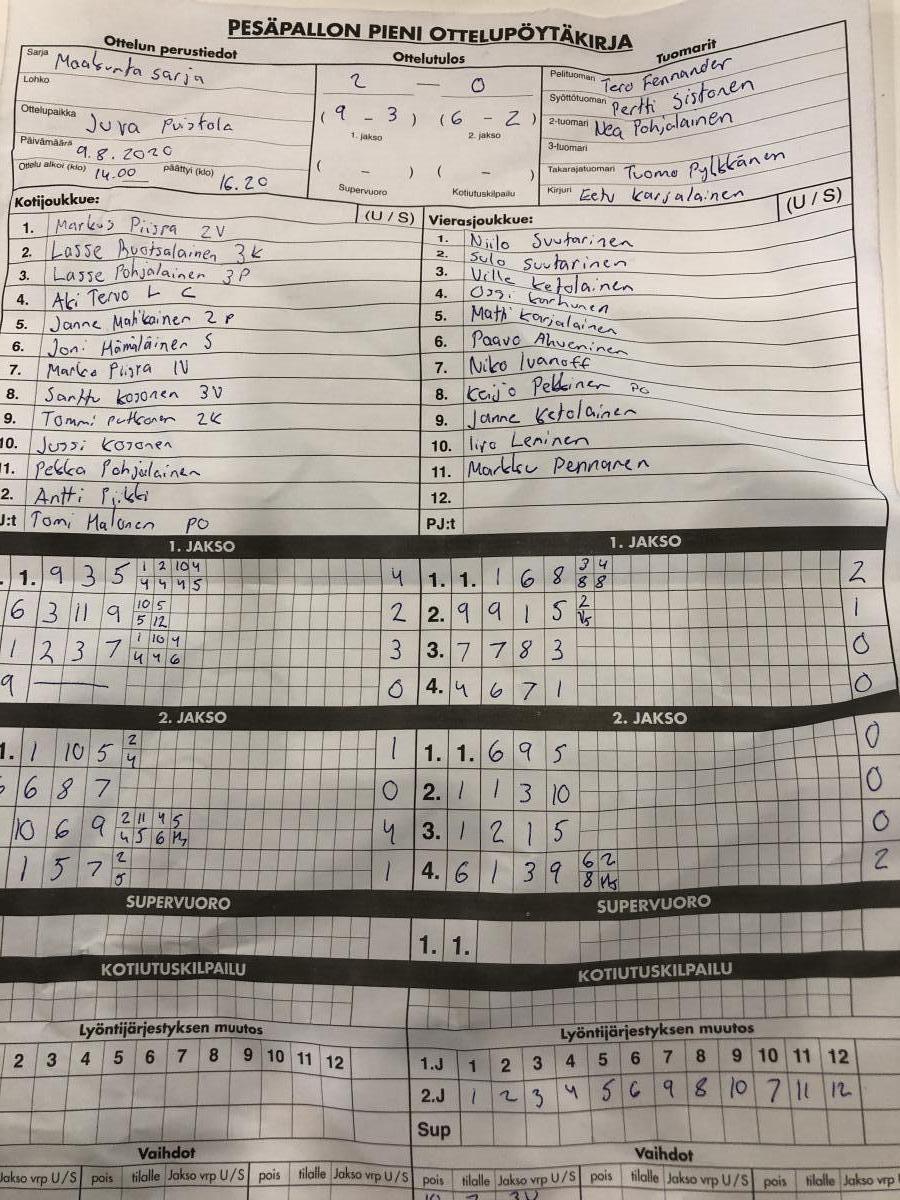 PESÄPALLON PIENI OTTELUPÖYTÄKIRJA
Ottelun perustiedot
Sarja Maakunta sarja
Lohko
Ottelupaikka Juva Puistola
Päivämäärä 9.8.2020
Ottelu alkoi (klo) 14.00 päättyi (klo) 16.20
Ottelutulos
2 — 0
(9 - 3) (6 - 2)
1. jakso 2. jakso
( - ) ( - )
Supervuoro Kotiutuskilpailu
Tuomarit
Pelituomari Tero Fennander
Syöttötuomari Pertti Sistonen
2-tuomari Nea Pohjalainen
3-tuomari
Takarajatuomari Tuomo Pylkkänen
Kirjuri Eetu Karjalainen
Kotijoukkue: (U / S)
1. Markus Piisra 2V
2. Lasse Ruotsalainen 3K
3. Lasse Pohjalainen 3P
4. Aki Tervo L C
5. Janne Matikainen 2P
6. Joni Hämäläinen S
7. Marko Piisra 1V
8. Santtu Kosonen 3V
9. Tommi Putkonen 2K
10. Jussi Kosonen
11. Pekka Pohjalainen
2. Antti Piikki
J:t Tomi Malonen PO
Vierasjoukkue: (U / S)
1. Niilo Suutarinen
2. Sulo Suutarinen
3. Ville Ketolainen
4. Ossi Karhunen
5. Matti Karjalainen
6. Paavo Ahveninen
7. Niko Ivanoff
8. Keijo Pekkinen PO
9. Janne Ketolainen
10. Iiro Leninen
11. Markku Pennanen
12.
PJ:t
1. JAKSO
1. 9 3 5 1 2 10 4 4
4 4 4 5
6 3 11 9 10 5 2
5 12
1 2 3 7 1 10 4 3
4 4 6
9 — 0
1. JAKSO
1. 1. 1 6 8 3 4 2
8 8
2. 9 9 1 5 2 1
3. 7 7 8 3 0
4. 4 6 7 1 0
2. JAKSO
1. 1 10 5 2 1
4
6 8 7 0
10 6 9 2 11 4 5 4
4 5 6
1 5 7 2 1
5
2. JAKSO
1. 1. 6 9 5 0
2. 1 1 3 10 0
3. 1 2 1 5 0
4. 6 1 3 9 6 2 2
8
SUPERVUORO
SUPERVUORO
1. 1.
KOTIUTUSKILPAILU
KOTIUTUSKILPAILU
Lyöntijärjestyksen muutos
2 3 4 5 6 7 8 9 10 11 12
Lyöntijärjestyksen muutos
1.J 1 2 3 4 5 6 7 8 9 10 11 12
2.J 1 2 3 4 5 6 9 8 10 7 11 12
Sup
Vaihdot
Jakso vrp U/S pois tilalle Jakso vrp U/S pois tilalle Jakso vrp U/S
Vaihdot
pois tilalle Jakso vrp U/S pois tilalle Jakso vrp U/S pois tilalle Jakso vrp